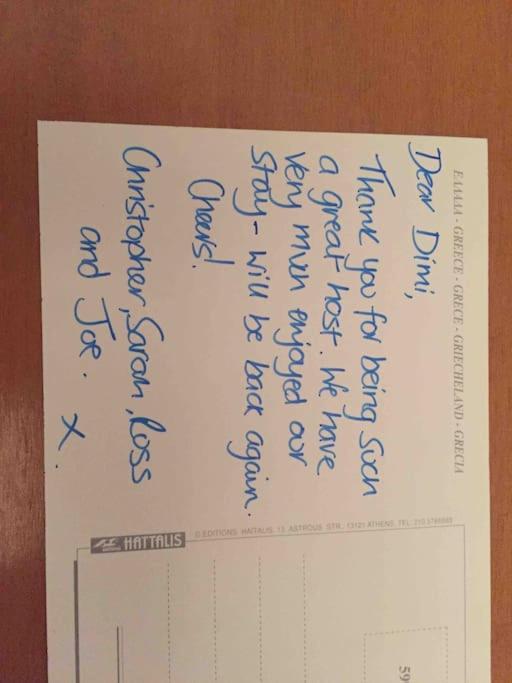 ΕΛΛΑΔΑ - GREECE - GRECE - GRIECHELAND - GRECIA
Dear Dimi,
Thank you for being such
a great host. We have
very much enjoyed our
stay - will be back again.
Cheers!
Christopher, Sarah, Ross
and Joe. x.
© EDITIONS HAITALIS, 13, ASTROUS STR., 13121 ATHENS, TEL. 210 5766883
HAITALIS
59